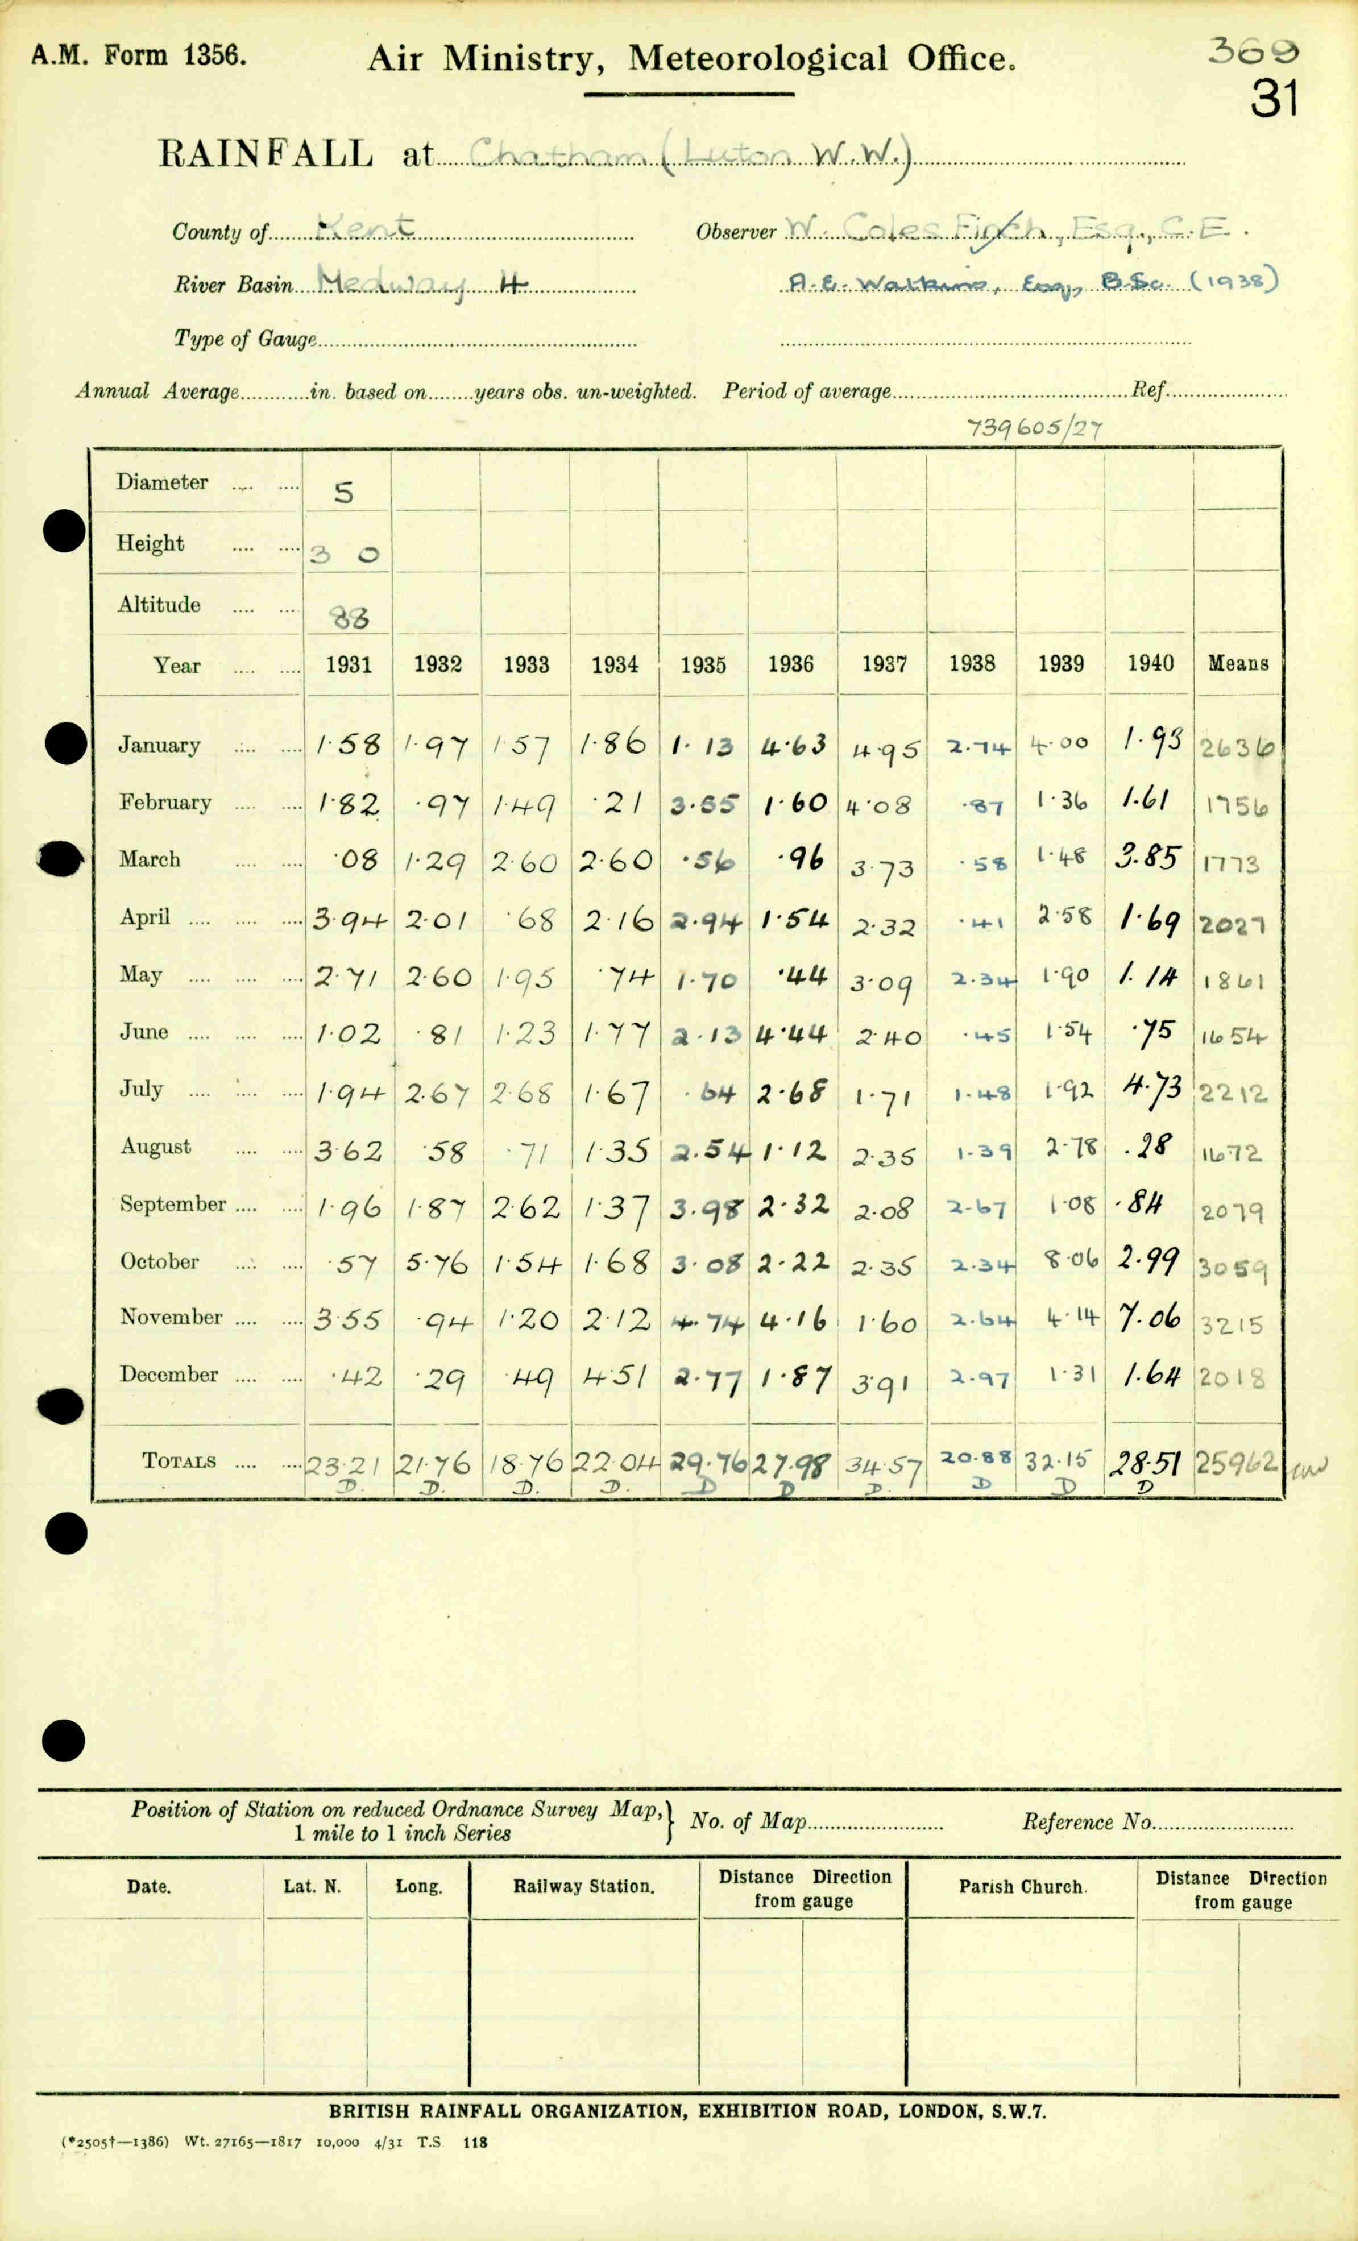 A.M. Form 1356. Air Ministry, Meteorological Office. 369
31
RAINFALL at Chatham (Luton W.W.)
County of Kent Observer W. Coles Finch, Esq., C.E.
River Basin Medway 4 A.E. Watkins, Esq., B.Sc. (1938)
Type of Gauge
Annual Average in. based on years obs. un-weighted. Period of average Ref.
739605/27
Diameter 5
Height 3 0
Altitude 88
Year 1931 1932 1933 1934 1935 1936 1937 1938 1939 1940 Means
January 1.58 1.97 1.57 1.86 1.13 4.63 4.95 2.74 4.00 1.93 2636
February 1.82 .97 1.49 .21 3.55 1.60 4.08 .87 1.36 1.61 1756
March .08 1.29 2.60 2.60 .56 .96 3.73 .58 1.48 3.85 1773
April 3.94 2.01 .68 2.16 2.94 1.54 2.32 .41 2.58 1.69 2027
May 2.71 2.60 1.95 .74 1.70 .44 3.09 2.34 1.90 1.14 1861
June 1.02 .81 1.23 1.77 2.13 4.44 2.40 .45 1.54 .75 1654
July 1.94 2.67 2.68 1.67 .64 2.68 1.71 1.48 1.92 4.73 2212
August 3.62 .58 .71 1.35 2.54 1.12 2.35 1.39 2.78 .28 1672
September 1.96 1.87 2.62 1.37 3.98 2.32 2.08 2.67 1.08 .84 2079
October .57 5.76 1.54 1.68 3.08 2.22 2.35 2.34 8.06 2.99 3059
November 3.55 .94 1.20 2.12 4.74 4.16 1.60 2.64 4.14 7.06 3215
December .42 .29 .49 4.51 2.77 1.87 3.91 2.97 1.31 1.64 2018
TOTALS 23.21 21.76 18.76 22.04 29.76 27.98 34.57 20.88 32.15 28.51 25962
D. D. D. D. D D D. D D D
Position of Station on reduced Ordnance Survey Map, } No. of Map Reference No.
1 mile to 1 inch Series
Date. Lat. N. Long. Railway Station. Distance Direction from gauge Parish Church. Distance Direction from gauge
BRITISH RAINFALL ORGANIZATION, EXHIBITION ROAD, LONDON, S.W.7.
(*2505†—1386) Wt. 27165—1817 10,000 4/31 T.S. 118